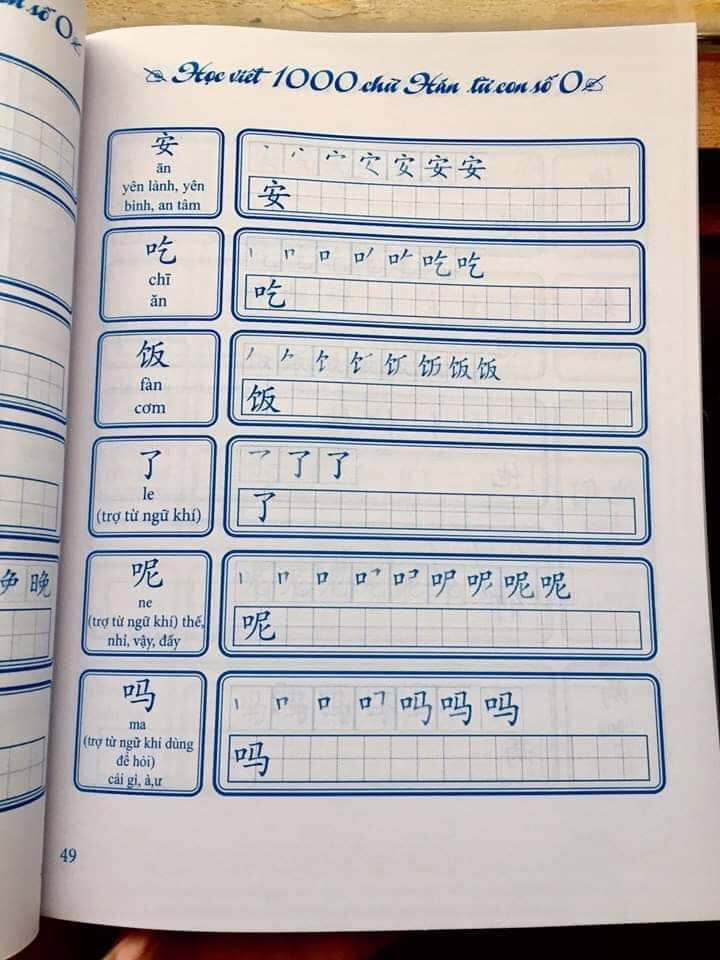 on số 0
Học viết 1000 chữ Hán từ con số 0
安
ān
yên lành, yên
bình, an tâm
宀 安 安
安
吃
chī
ăn
丨 口 吃 吃
吃
饭
fàn
cơm
饣 饭 饭
饭
了
le
(trợ từ ngữ khí)
了 了
了
呢
ne
(trợ từ ngữ khí) thế,
nhỉ, vậy, đấy
丨 口 呢 呢
呢
吗
ma
(trợ từ ngữ khí dùng
để hỏi)
cái gì, à,ư
丨 口 吗 吗 吗
吗
晚
49